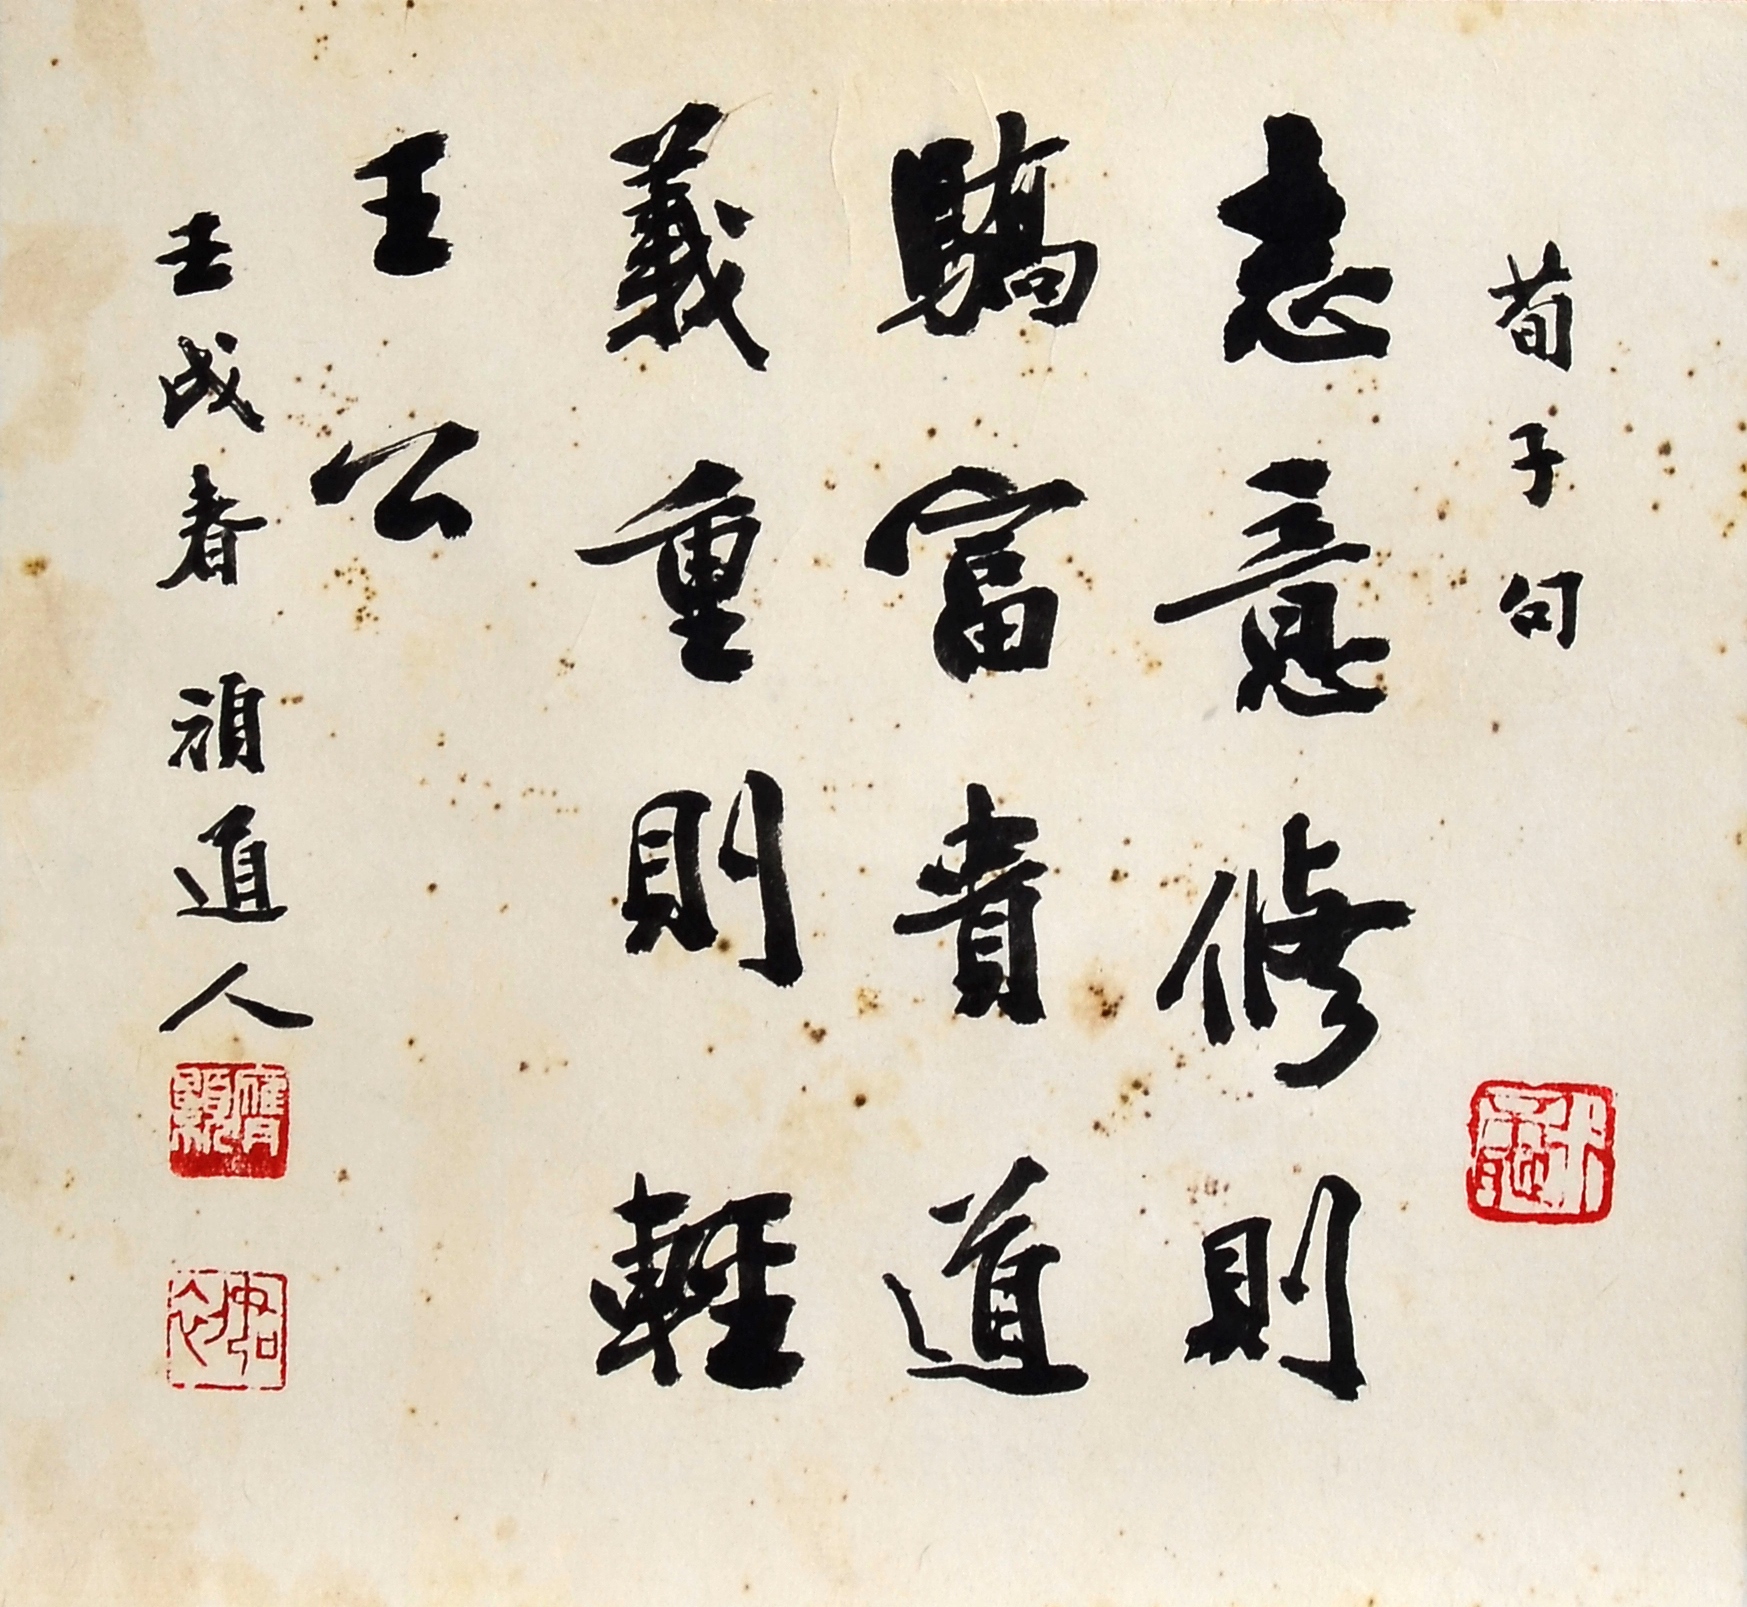 荀子句
志意修則
驕富貴道
義重則輕
王公
壬戌春 須道人